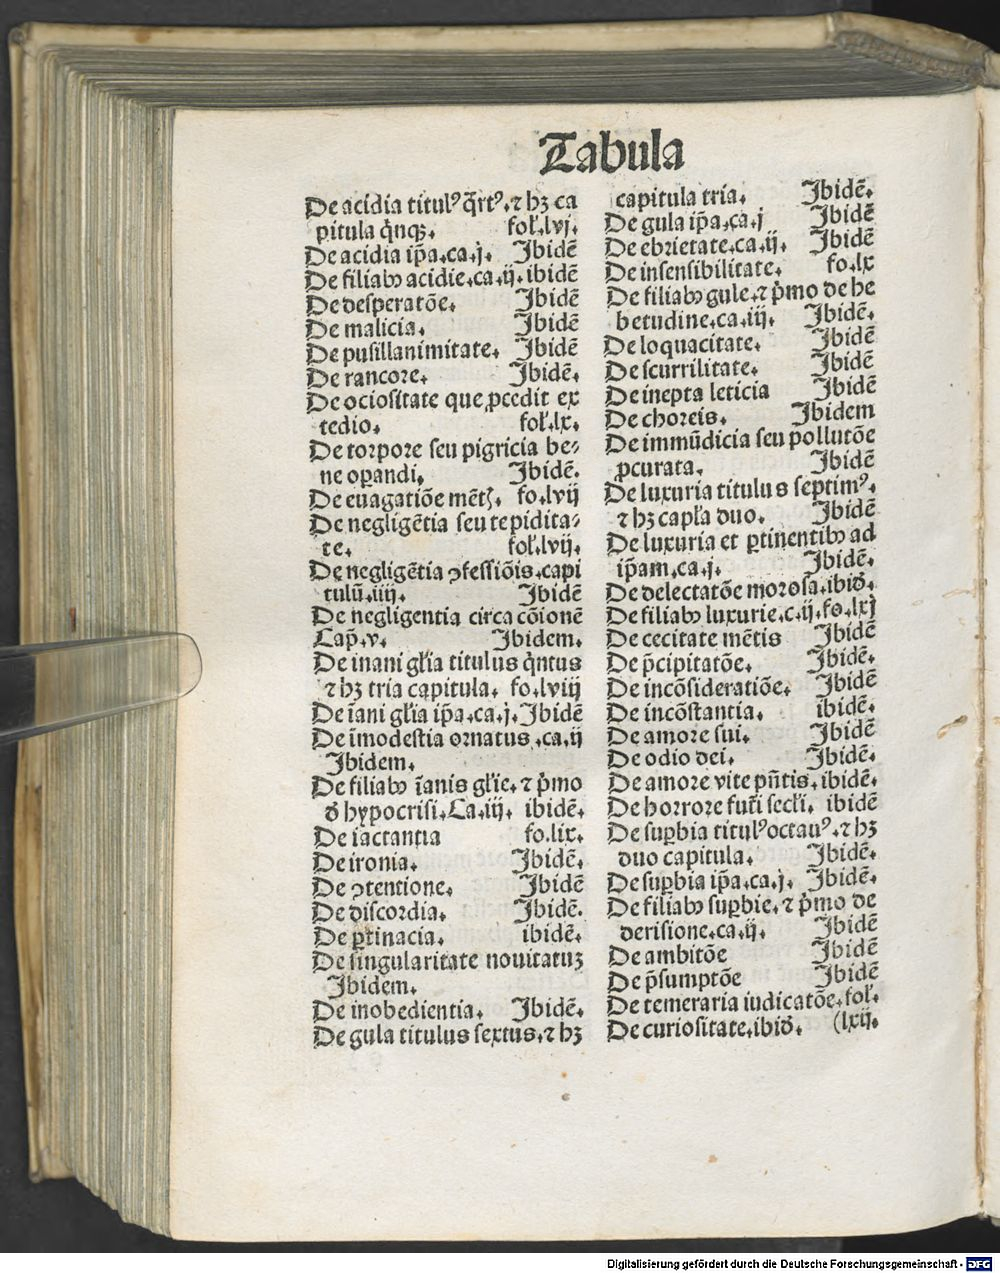 Tabula
De acidia titulꝰ q̃rtꝰ.⁊ hꝫ ca
pitula q̃nqꝫ. fol̕.lvj.
De acidia ip̃a.ca.j. Jbidẽ
De filiabꝰ acidie.ca.ij.ibidẽ
De desperatõe. Jbidẽ
De malicia. Jbidẽ
De pusillanimitate. Jbidẽ
De rancore. Jbidẽ.
De ociositate que ꝓcedit ex
tedio. fol̕.lx.
De torpore seu pigricia be⸗
ne oꝑandi. Jbidẽ.
De euagatiõe mẽtꝭ. fo.lvij
De negligẽtia seu tepidita⸗
te. fol̕.lvij.
De negligẽtia ꝯfessiõis.capi
tulũ.iiij. Jbidẽ
De negligentia circa cõionẽ
Cap̃.v. Jbidem.
De inani gl̕ia titulus q̃ntus
⁊ hꝫ tria capitula. fo.lviij
De ĩani gl̕ia ip̃a.ca.j.Jbidẽ
De ĩmodestia ornatus.ca.ij
Jbidem.
De filiabꝰ ĩanis gl̕ie.⁊ p̃mo
ð hypocrisi.Ca.iij. ibidẽ.
De iactantia fo.lix.
De ironia. Jbidẽ.
De ꝯtentione. Jbidẽ
De discordia. Jbidẽ.
De ꝑtinacia. ibidẽ.
De singularitate nouitatuꝫ
Jbidem.
De inobedientia. Jbidẽ.
De gula titulus sextus.⁊ hꝫ
capitula tria. Jbidẽ.
De gula ip̃a.ca.j Jbidẽ
De ebrietate.ca.ij. Jbidẽ
De insensibilitate. fo.lx
De filiabꝰ gule.⁊ p̃mo de he
betudine.ca.iij. Jbidẽ.
De loquacitate. Jbidẽ
De scurrilitate. Jbidẽ
De inepta leticia Jbidẽ
De choreis. Jbidem
De immũdicia seu pollutõe
ꝓcurata. Jbidẽ
De luxuria titulus septimꝰ.
⁊ hꝫ capl̕a duo. Jbidẽ
De luxuria et ꝑtinentibꝰ ad
ip̃am.ca.j. Jbidẽ.
De delectatõe morosa.ibið.
De filiabꝰ luxurie.c.ij.fo.lxj
De cecitate mẽtis Jbidẽ
De p̃cipitatõe. Jbidẽ.
De incõsideratiõe. Jbidẽ
De incõstantia. ibidẽ.
De amore sui. Jbidẽ
De odio dei. Jbidẽ.
De amore vite pñtis.ibidẽ.
De horrore fut̕i secl̕i. ibidẽ
De suꝑbia titulꝰ octauꝰ.⁊ hꝫ
duo capitula. Jbidẽ.
De suꝑbia ip̃a.ca.j. Jbidẽ.
De filiabꝰ suꝑbie.⁊ p̃mo de
derisione.ca.ij. Jbidẽ
De ambitõe Jbidẽ
De p̃sumptõe Jbidẽ
De temeraria iudicatõe.fol̕.
De curiositate.ibið. (lxij.
Digitalisierung gefördert durch die Deutsche Forschungsgemeinschaft - DFG